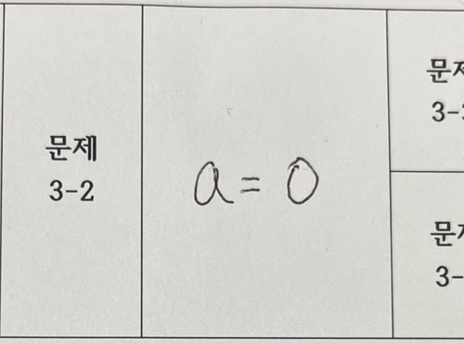 문제
3-2
a = 0
문제
3-
문제
3-